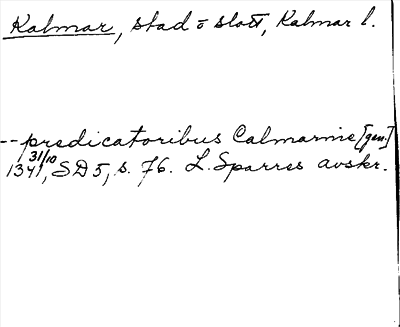 Kalmar, stad o slott, Kalmar l.
-- predicatoribus Calmarnie [gen.]
1341 31/10, SD 5, s. 76. L. Sparres avskr.